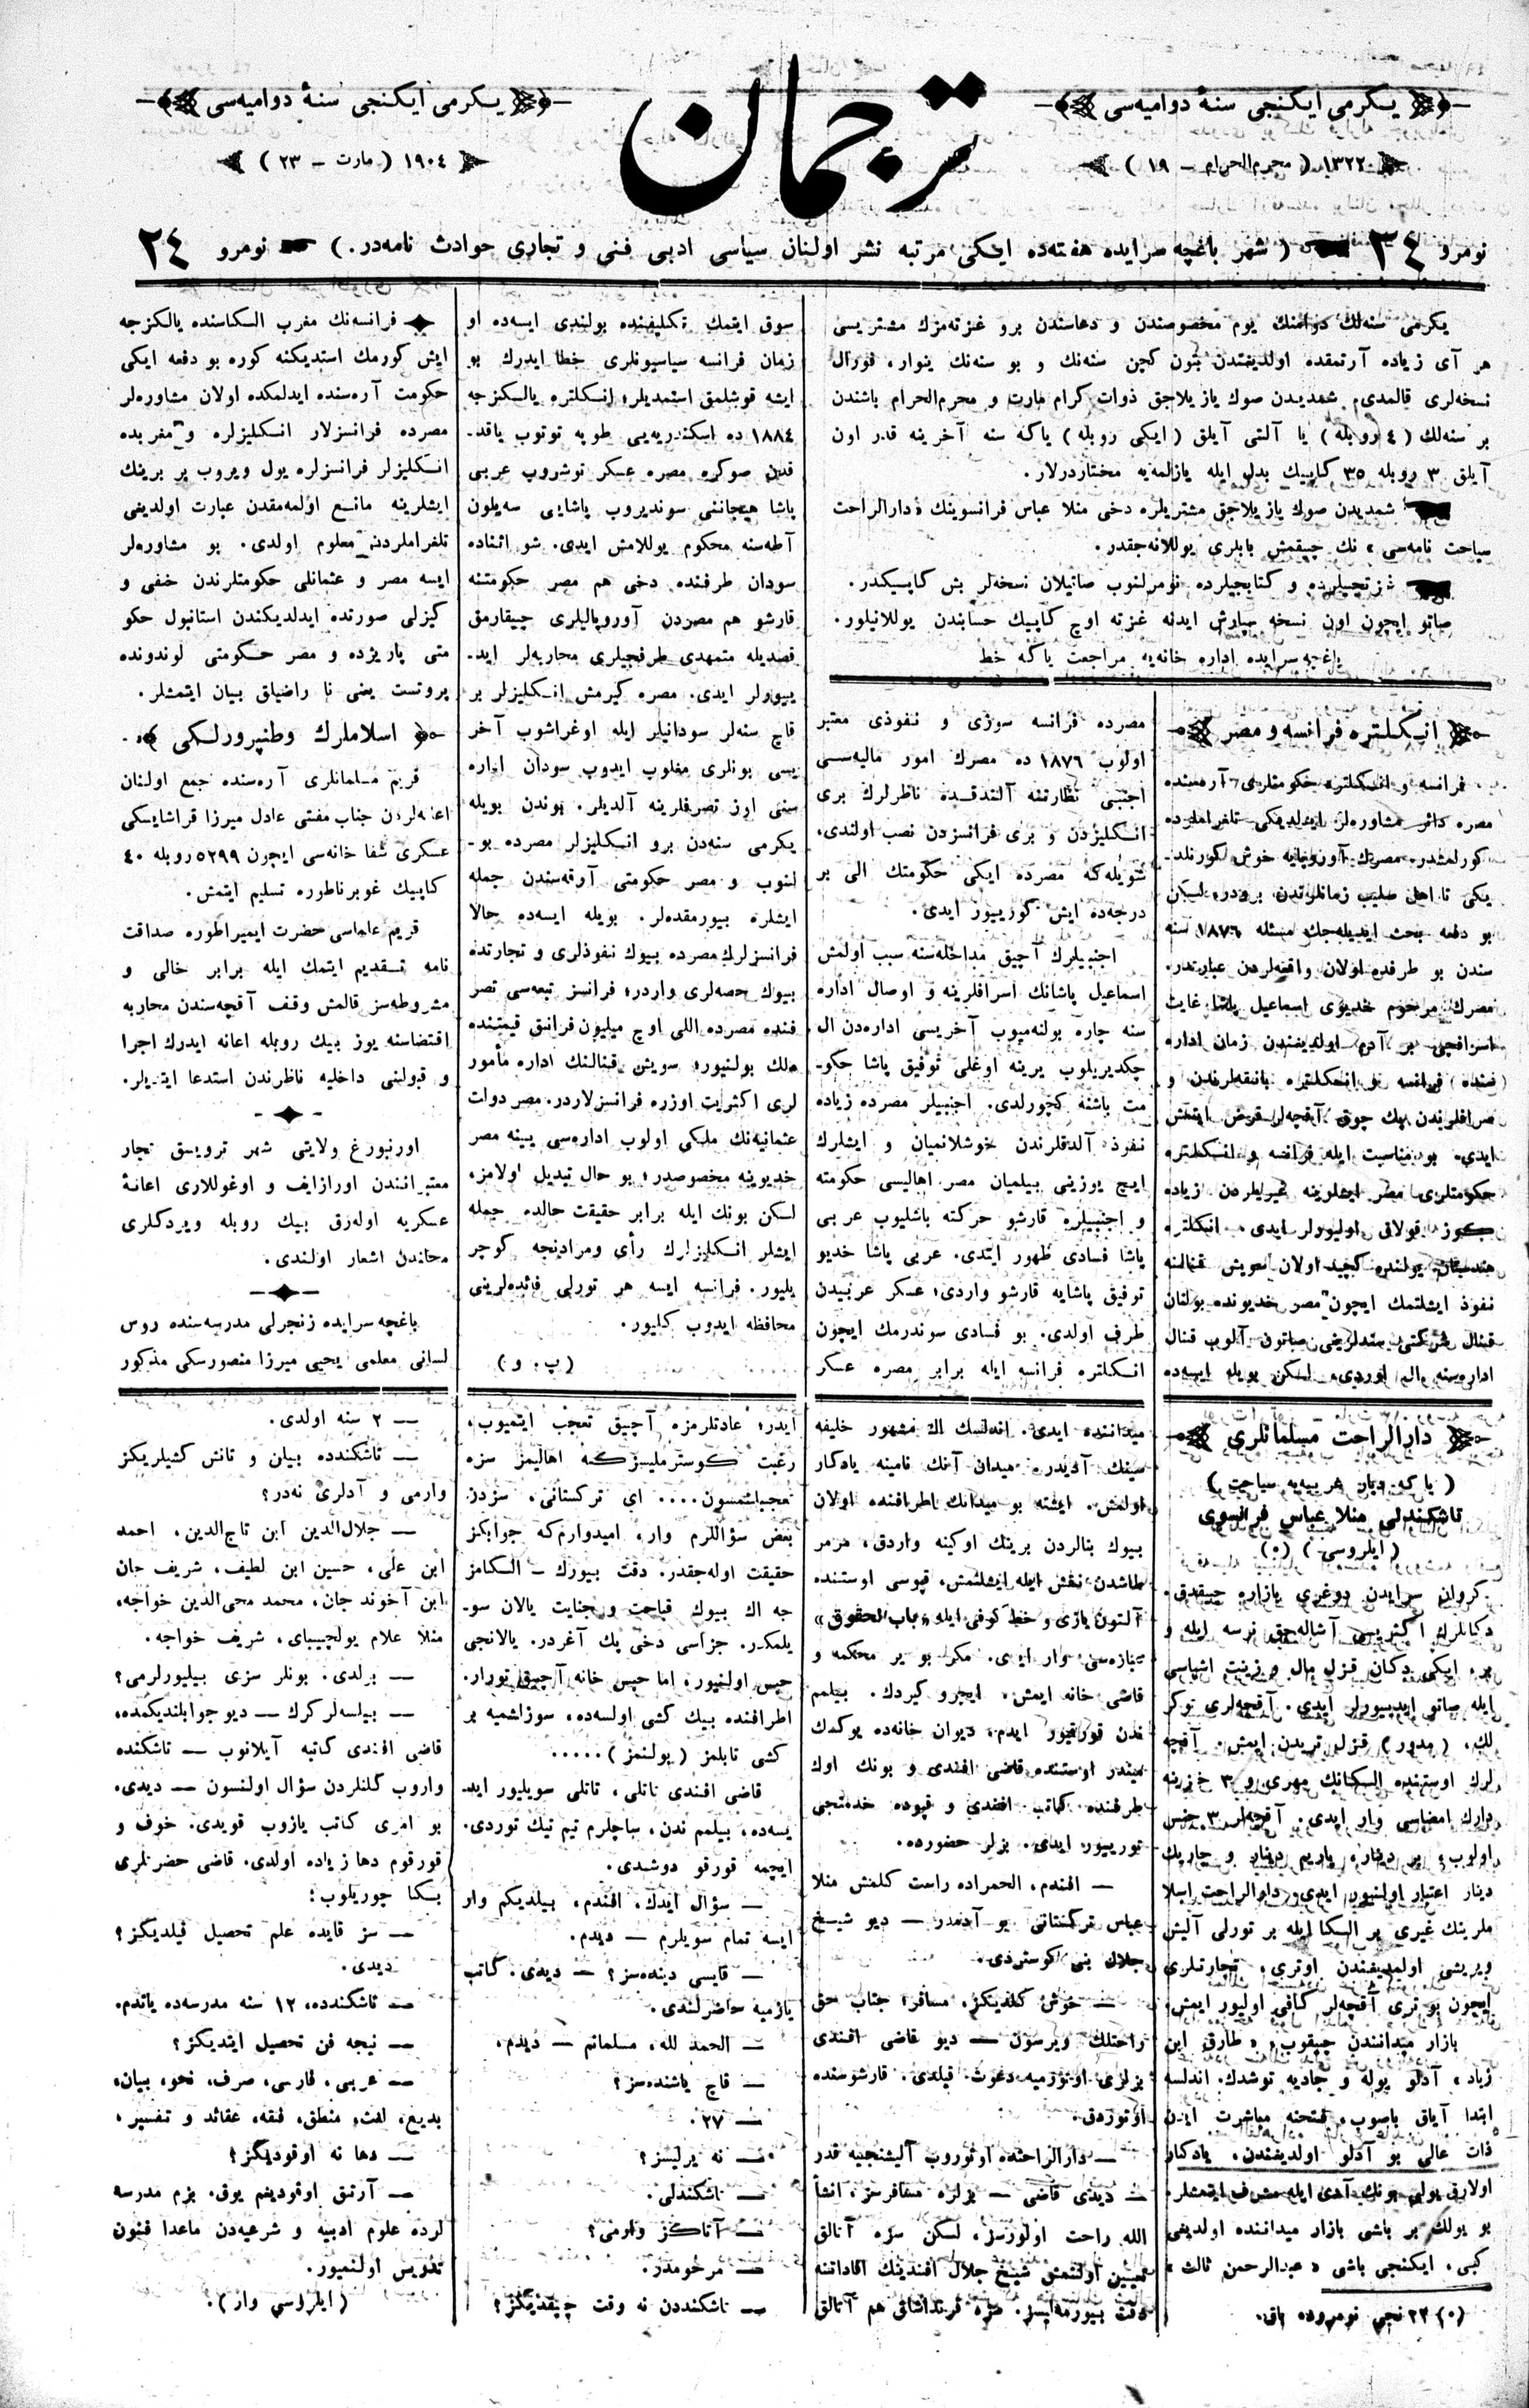 يكرمی ايكنجی سنۀ دواميه‌سی
١٣٢٢ ( محرم‌الحرام – ١٩ )
ترجمان
يكرمی ايكنجی سنۀ دواميه‌سی
١٩٠٤ ( مارت – ٢٣ )
نومرو ٢٤ ( شهر باغچه سرايده هفته‌ده ايكی مرتبه نشر اولنان سياسی ادبی فنی و تجاری حوادث نامه‌در.) نومرو ٢٤
يكرمی سنه‌لك دوامنك يوم مخصوصندن و دعاسندن برو غزته‌مزك مشتريسی
هر آی زياده آرتمقده اولديغندن بتون كچن سنه‌نك و بو سنه‌نك ينوار، فورال
نسخه‌لری قالمدی، شمديدن صوك يازيلاجق ذوات كرام مارت و محرم‌الحرام باشندن
بر سنه‌لك ( ٤ روبله ) يا آلتی آيلق ( ايكی روبله ) ياكه سنه آخرينه قدر اون
آيلق ٣ روبله ٣٥ كاپيك بدل ايله يازلمه‌يه مختاردرلار.
شمديدن صوك يازيلاجق مشتريلره دخی منلا عباس فرانسوينك « دارالراحت
سياحت نامه‌سی » نك چيقمش بابلری يوللانه‌جقدر.
غزتجيلرده و كتابجيلرده نومرلنوب صاتيلان نسخه‌لر بش كاپيكدر.
صاتو ايچون اون نسخه سپارش ايدنه غزته اوچ كاپيك حسابندن يوللانيلور.
باغچه سرايده اداره خانه‌يه مراجعت ياكه خط
انكلتره فرانسه و مصر
فرانسه و انكلتره حكومتلری آره‌سنده
مصره دائر مشاوره‌لر ايدلديكی تلغرافلرده
كورلمشدر. مصرك آوروپايه خوش كورنلد‌ـ
يكی تا اهل صليب زمانلرندن برودر. لسكن
بو دفعه بحث ايديله‌جك مسئله ١٨٧٦ سنه
سندن بو طرفده اولان واقعه‌لردن عبارتدر.
مصرك مرحوم خديوی اسماعيل پاشا غايت
اسرافچی بر آدم اولديغندن زمان اداره
سنده فرانسه و انكلتره بانقه‌لرندن و
صرافلرندن پك چوق آقچه‌لر قرض ايتمش
ايدی. بو مناسبت ايله فرانسه و انكلتره
حكومتلری مصر ايشلرينه غيريلردن زياده
كوز قولاق اوليورلر ايدی. انكلتره
هندستان يولنده كچيد اولان سويش قنالنه
نفوذ ايشلتمك ايچون مصر خديونده بولنان
قنال شركتی سندلرينی صاتون آلوب قنال
اداره‌سنه ال اوردی. لسكن بويله ايسه‌ده
مصرده فرانسه سوزی و نفوذی معتبر
اولوب ١٨٧٦ ده مصرك امور ماليه‌سی
اجنبی نظارتنه آلندقده ناظرلرك بری
انكليزدن و بری فرانسزدن نصب اولندی،
شويله‌كه مصرده ايكی حكومتك الی بر
درجه‌ده ايش كورييور ايدی.
اجنبيلرك آچيق مداخله‌سنه سبب اولمش
اسماعيل پاشانك اسرافلرينه و اوصال اداره
سنه چاره بولنه‌ميوب آخريسی اداره‌دن ال
چكديريلوب يرينه اوغلی توفيق پاشا حكو‌ـ
مت باشنه كچورلدی. اجنبيلر مصرده زياده
نفوذ آلدقلرندن خوشلانميان و ايشلرك
ايچ يوزينی بيلميان مصر اهاليسی حكومته
و اجنبيلره قارشو حركته باشليوب عربی
پاشا فسادی ظهور ايتدی. عربی پاشا خديو
توفيق پاشايه قارشو واردی؛ عسكر عربيدن
طرف اولدی. بو فسادی سوندرمك ايچون
انكلتره فرانسه ايله برابر مصره عسكر
سوق ايتمك تكليفنده بولندی ايسه‌ده او
زمان فرانسه سياسيونلری خطا ايدرك بو
ايشه قوشلمق استمديلر؛ انكلتره يالكزجه
١٨٨٤ ده اسكندريه‌يی طوپه توتوب ياقد‌ـ
قدن صوكره مصره عسكر توشروب عربی
پاشا هيجاننی سونديروب پاشايی سه‌يلون
آطه‌سنه محكوم يوللامش ايدی. شو اثناده
سودان طرفنده دخی هم مصر حكومتنه
قارشو هم مصردن آوروپاليلری چيقارمق
قصديله متمهدی طرفچيلری محاربه‌لر ايد‌ـ
ييوورلر ايدی. مصره كيرمش انكليزلر بر
قاچ سنه‌لر سودانيلر ايله اوغراشوب آخر
يسی بونلری مغلوب ايدوب سودان اداره
سنی اوز تصرفلرينه آلديلر. بوندن بويله
يكرمی سنه‌دن برو انكليزلر مصرده بو‌ـ
لنوب و مصر حكومتی آرقه‌سندن جمله
ايشلره بيورمقده‌لر. بويله ايسه‌ده حالا
فرانسزلرك مصرده بيوك نفوذلری و تجارتده
بيوك حصه‌لری واردر؛ فرانسز تبعه‌سی تصر
فنده مصرده اللی اوچ ميليون فرانق قيمتنده
ملك بولنيور؛ سويش قنالنك اداره مأمور
لری اكثريت اوزره فرانسزلاردر. مصر دولت
عثمانيه‌نك ملكی اولوب اداره‌سی يينه مصر
خديوينه مخصوصدر؛ بو حال تبديل اولامز،
لسكن بونك ايله برابر حقيقت حالده جمله
ايشلر انكليزلرك رأی و مرادنجه كوچر
يليور. فرانسه ايسه هر تورلی فائده‌لرينی
محافظه ايدوب كليور.
( پ. و )
فرانسه‌نك مغرب السكاسنده يالكزجه
ايش كورمك استديكنه كوره بو دفعه ايكی
حكومت آره‌سنده ايدلمكده اولان مشاوره‌لر
مصرده فرانسزلار انكليزلره و مغربده
انكليزلر فرانسزلره يول ويروب بر برينك
ايشلرينه مانع اولمه‌مقدن عبارت اولديغی
تلغرافلردن معلوم اولدی. بو مشاوره‌لر
ايسه مصر و عثمانلی حكومتلرندن خفی و
كيزلی صورتده ايدلديكندن استانبول حكو
متی پاريژده و مصر حكومتی لوندونده
پروتست يعنی نا راضيلق بيان ايتمشلر.
اسلاملرك وطنپرورلكی
قريم مسلمانلری آره‌سنده جمع اولنان
اعانه‌لردن جناب مفتی عادل ميرزا قراشايسكی
عسكری شفا خانه‌سی ايچون ٥٢٩٩ روبله ٤٠
كاپيك غوبرناطوره تسليم ايتمش.
قريم علماسی حضرت ايمپراطوره صداقت
نامه تقديم ايتمك ايله برابر خالی و
مشروطه‌سز قالمش وقف آقچه‌سندن محاربه
اقتضاسنه يوز بيك روبله اعانه ايدرك اجرا
و قبولنی داخليه ناظرندن استدعا ايتديلر.
اورنبورغ ولايتی شهر ترويسق تجار
معتبرانندن اورازايف و اوغوللاری اعانۀ
عسكريه اوله‌رق بيك روبله ويردكلری
محلندن اشعار اولندی.
باغچه سرايده زنجرلی مدرسه‌سنده روس
لسانی معلمی يحيی ميرزا منصورسكی مذكور
دارالراحت مسلمانلری
( ياكه ديار غربيه‌يه سياحت )
تاشكندلی منلا عباس فرانسوی
( ايلروسی ) (٠)
كروان سرايدن دوغری يازاره چيقدق.
دكانلرك اكثريسی آشاله‌جق نرسه ايله و
بر، ايكی دكان قزل مال و زينت اشياسی
ايله صاتو ايدييورلر ايدی. آقچه‌لری توكر
لك، ( مدور ) قزل تريدن ايمش. آقچه
لرك اوستنده السكانك مهری و ٣ خزينه
دارك امضاسی وار ايدی. آقچه‌لر ٣ جنس
اولوب، بر دينار، ياريم دينار و چاريك
دينار اعتبار اولنيور ايدی. دارالراحت اسلا
ملرينك غيری بر السكا ايله بر تورلی آليش
ويريشی اولمديغندن اوتری، تجارتلری
ايچون بو تری آقچه‌لر كافی اوليور ايمش.
بازار ميدانندن چيقوب، « طارق ابن
زياد » آدلو يوله و جاديه توشدك. اندلسه
ابتدا آياق باصوب، فتحنه مباشرت ايدن
ذات عالی بو آدلو اولديغندن، يادكار
اولارق يولی بونك آدی ايله مشرف ايتمشلر.
بو يولك بر باشی بازار ميداننده اولديغی
كبی، ايكنجی باشی « عبدالرحمن ثالث »
(٠) ٢٢ نجی نومروده باق.
ميداننده ايدی. اندلسك اك مشهور خليفه
سينك آديدر. ميدان آنك نامينه يادكار
اولمش. ايشته بو ميدانك اطرافنده اولان
بيوك بنالردن برينك اوكينه واردق، مرمر
طاشدن نقش ايله ايشلنمش، قپوسی اوستنده
آلتون يازی و خط كوفی ايله « باب الحقوق »
يازه‌سی وار ايدی. مكر بو بر محكمه و
قاضی خانه ايمش. ايچرو كيردك. بيلمم
ندن قورقيور ايدم، ديوان خانه‌ده يوكسك
ميندر اوستنده قاضی افندی و بونك اوك
طرفنده كاتب افندی و قپوده خدمتجی
تورييور ايدی. بزلر حضورده.
— افندم، الحمراده راست كلمش منلا
عباس تركستانی بو آدمدر — ديو شيخ
جلال بنی كوستردی.
— خوش كلديكز، مسافر؛ جناب حق
راحتلك ويرسون — ديو قاضی افندی
بزلری اوتورميه دعوت قيلدی. قارشوسنده
اوتوردق.
— دارالراحتده اوتوروب آليشنجيه قدر
— ديدی قاضی — بزلره مسافرسز، انشأ
الله راحت اولورسز، لسكن سزه آتالق
تعيين اولنمش شيخ جلال افندينك افاداتنه
دقت بيورمه‌ليسز. سزه قرنداشانی هم آتالق
ايدر؛ عادتلرمزه آچيق تعجب ايتميوب،
رغبت كوسترمليسزكه اهاليمز سزه
تعجباشمسون.... ای تركستانی، سزدن
بعض سؤاللرم وار، اميدوارم‌كه جوابكز
حقيقت اوله‌جقدر. دقت بيورك – السكامز
جه اك بيوك قباحت و جنايت يالان سو‌ـ
يلمكدر. جزاسی دخی پك آغردر. يالانجی
حبس اولنيور، اما حبس خانه آچيق تورار.
اطرافنده بيك كشی اولسه‌ده، سوزاشميه بر
كشی تابلمز ( بولنمز ).....
قاضی افندی تاتلی، تاتلی سويليور ايد‌ـ
يسه‌ده، بيلمم ندن، ساچلرم تيم تيك توردی.
ايچمه قورقو دوشدی.
— سؤال ايدك، افندم، بيلديكم وار
ايسه تمام سويلرم — ديدم.
— قايسی دينده‌سز؟ — ديدی. كاتب
يازميه حاضرلندی.
— الحمد لله، مسلمانم — ديدم.
— قاچ ياشنده‌سز؟
— ٢٧.
— نه يرليسز؟
— تاشكندلی.
— آتاكز وارمی؟
— مرحومدر.
— تاشكنددن نه وقت چيقديكز؟
— ٢ سنه اولدی.
— تاشكندده بيان و تانش كشيلريكز
وارمی و آدلری نه‌در؟
— جلال‌الدين ابن تاج‌الدين، احمد
ابن علی، حسين ابن لطيف، شريف جان
ابن آخوند جان، محمد محی‌الدين خواجه،
منلا علام يولچيبای، شريف خواجه.
— برلدی. بونلر سزی بيليورلرمی؟
— بيلسه‌لر كرك — ديو جوابلنديكمده،
قاضی افندی كاتبه آيلانوب — تاشكنده
واروب كلنلردن سؤال اولنسون — ديدی.
بو امری كاتب يازوب قويدی. خوف و
قورقوم دها زياده اولدی. قاضی حضرتلری
بسكا چوريلوب:
— سز قايده علم تحصيل قيلديكز؟
ديدی.
— تاشكندده، ١٢ سنه مدرسه‌ده ياتدم.
— نيجه فن تحصيل ايتديكز؟
— عربی، فارسی، صرف، نحو، بيان،
بديع، لغت، منطق، فقه، عقائد و تفسير،
— دها نه اوقوديكز؟
— آرتق اوقوديغم يوق. بزم مدرسه
لرده علوم ادبيه و شرعيه‌دن ماعدا فنون
تدريس اولنميور.
( ايلروسی وار ).